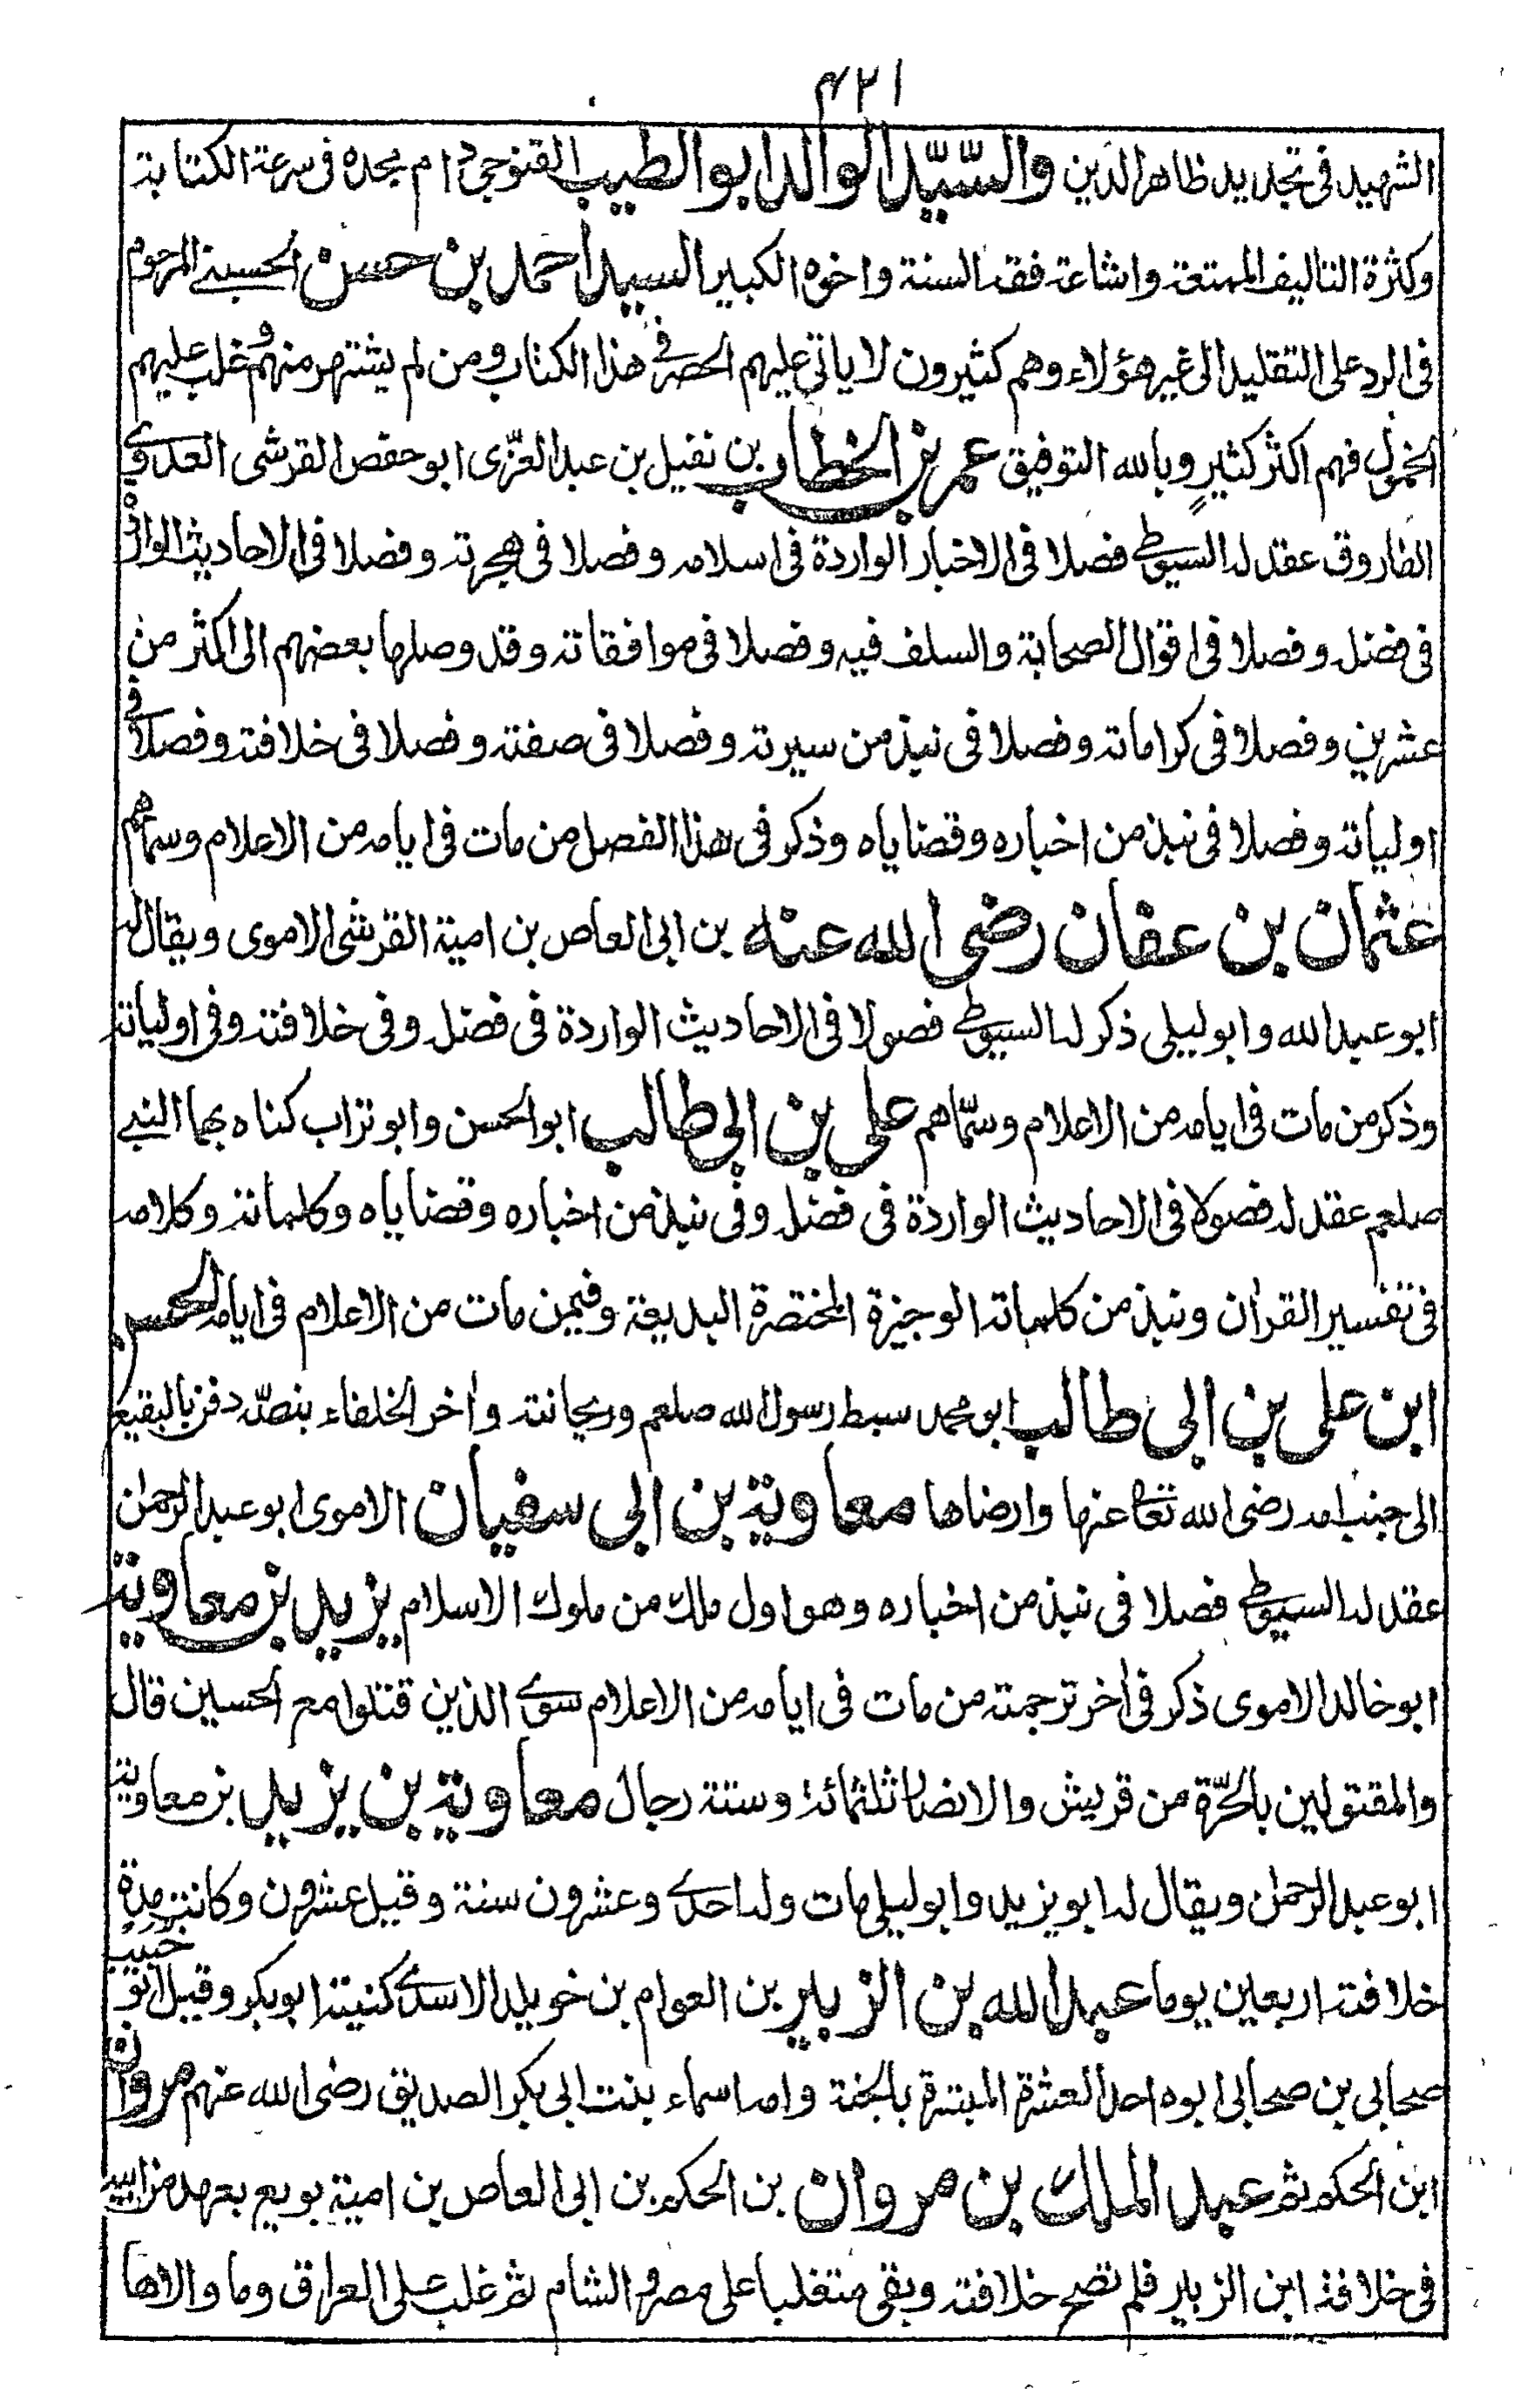 ۴۲۱
الشهيد فى تجديد ظاهر الدين والسّيّد الوالد ابو الطيب القنوجى دام مجده فى سرعة الكتابة
وكثرة التاليف الممتعة واشاعة فقه السنة واخوه الكبير السيد احمد بن حسن الحسينے المرحوم
فى الرد على التقليد الى غير هؤلاء وهم كثيرون لا ياتى عليهم الحصر فى هذا الكتاب ومن لم يشتهر منهم وغلب عليهم
الخمول فهم اكثر كثيرٍ وبالله التوفيق عمر بن الخطاب بن نفيل بن عبد العزّى ابو حفص القرشى العدوى
الفاروق عقد له السيوطے فصلا فى الاخبار الواردة فى اسلامه وفصلا فى هجرته وفصلا فى الاحاديث الواردة
فى فضله وفصلا فى اقوال الصحابة والسلف فيه وفصلا فى موافقاته وقد وصلها بعضهم الى اكثر من
عشرين وفصلا فى كراماته وفصلا فى نبذ من سيرته وفصلا فى صفته وفصلا فى خلافته وفصلا فى
اولياته وفصلا فى نبذ من اخباره وقضاياه وذكر فى هذا الفصل من مات فى ايامه من الاعلام وسماهم
عثمان بن عفان رضى الله عنه بن ابى العاص بن امية القرشى الاموى ويقال له
ابو عبد الله وابو ليلى ذكر له السيوطے فصولا فى الاحاديث الواردة فى فضله وفى خلافته وفى اولياته
وذكر من مات فى ايامه من الاعلام وسمّاهم على بن ابى طالب ابو الحسن وابو تراب كناه بهما النبے
صلعم عقد له فصولا فى الاحاديث الواردة فى فضله وفى نبذ من اخباره وقضاياه وكلماته وكلامه
فى تفسير القرآن ونبذ من كلماته الوجيزة المختصرة البديعة وفيمن مات من الاعلام فى ايامه الحسن
ابن على بن ابى طالب ابو محمد سبط رسول الله صلعم وريحانته وآخر الخلفاء بنصّه دفن بالبقيع
الى جنب امه رضى الله تعالى عنها وارضاها معاوية بن ابى سفيان الاموى ابو عبد الرحمن
عقد له السيوطے فصلا فى نبذ من اخباره وهو اول ملك من ملوك الاسلام يزيد بن معاوية
ابو خالد الاموى ذكر فى آخر ترجمته من مات فى ايامه من الاعلام سوى الذين قتلوا مع الحسين قال
والمقتولين بالحرّة من قريش والانصار ثلثمائة وستة رجال معاوية بن يزيد بن معاوية
ابو عبد الرحمن ويقال له ابو يزيد وابو ليلى مات وله احدى وعشرون سنة وقيل عشرون وكانت مدة
خلافته اربعين يوما عبد الله بن الزبير بن العوام بن خويلد الاسدى كنيته ابو بكر وقيل ابو خبيب
صحابى بن صحابى ابوه احد العشرة المبشرة بالجنة وامه اسماء بنت ابى بكر الصديق رضى الله عنهم مروان
ابن الحكم ثم عبد الملك بن مروان بن الحكم بن ابى العاص بن امية بويع بعهد من ابيه
فى خلافة ابن الزبير فلم تصح خلافته وبقى متغلبا على مصر والشام ثم غلب على العراق وما والاها